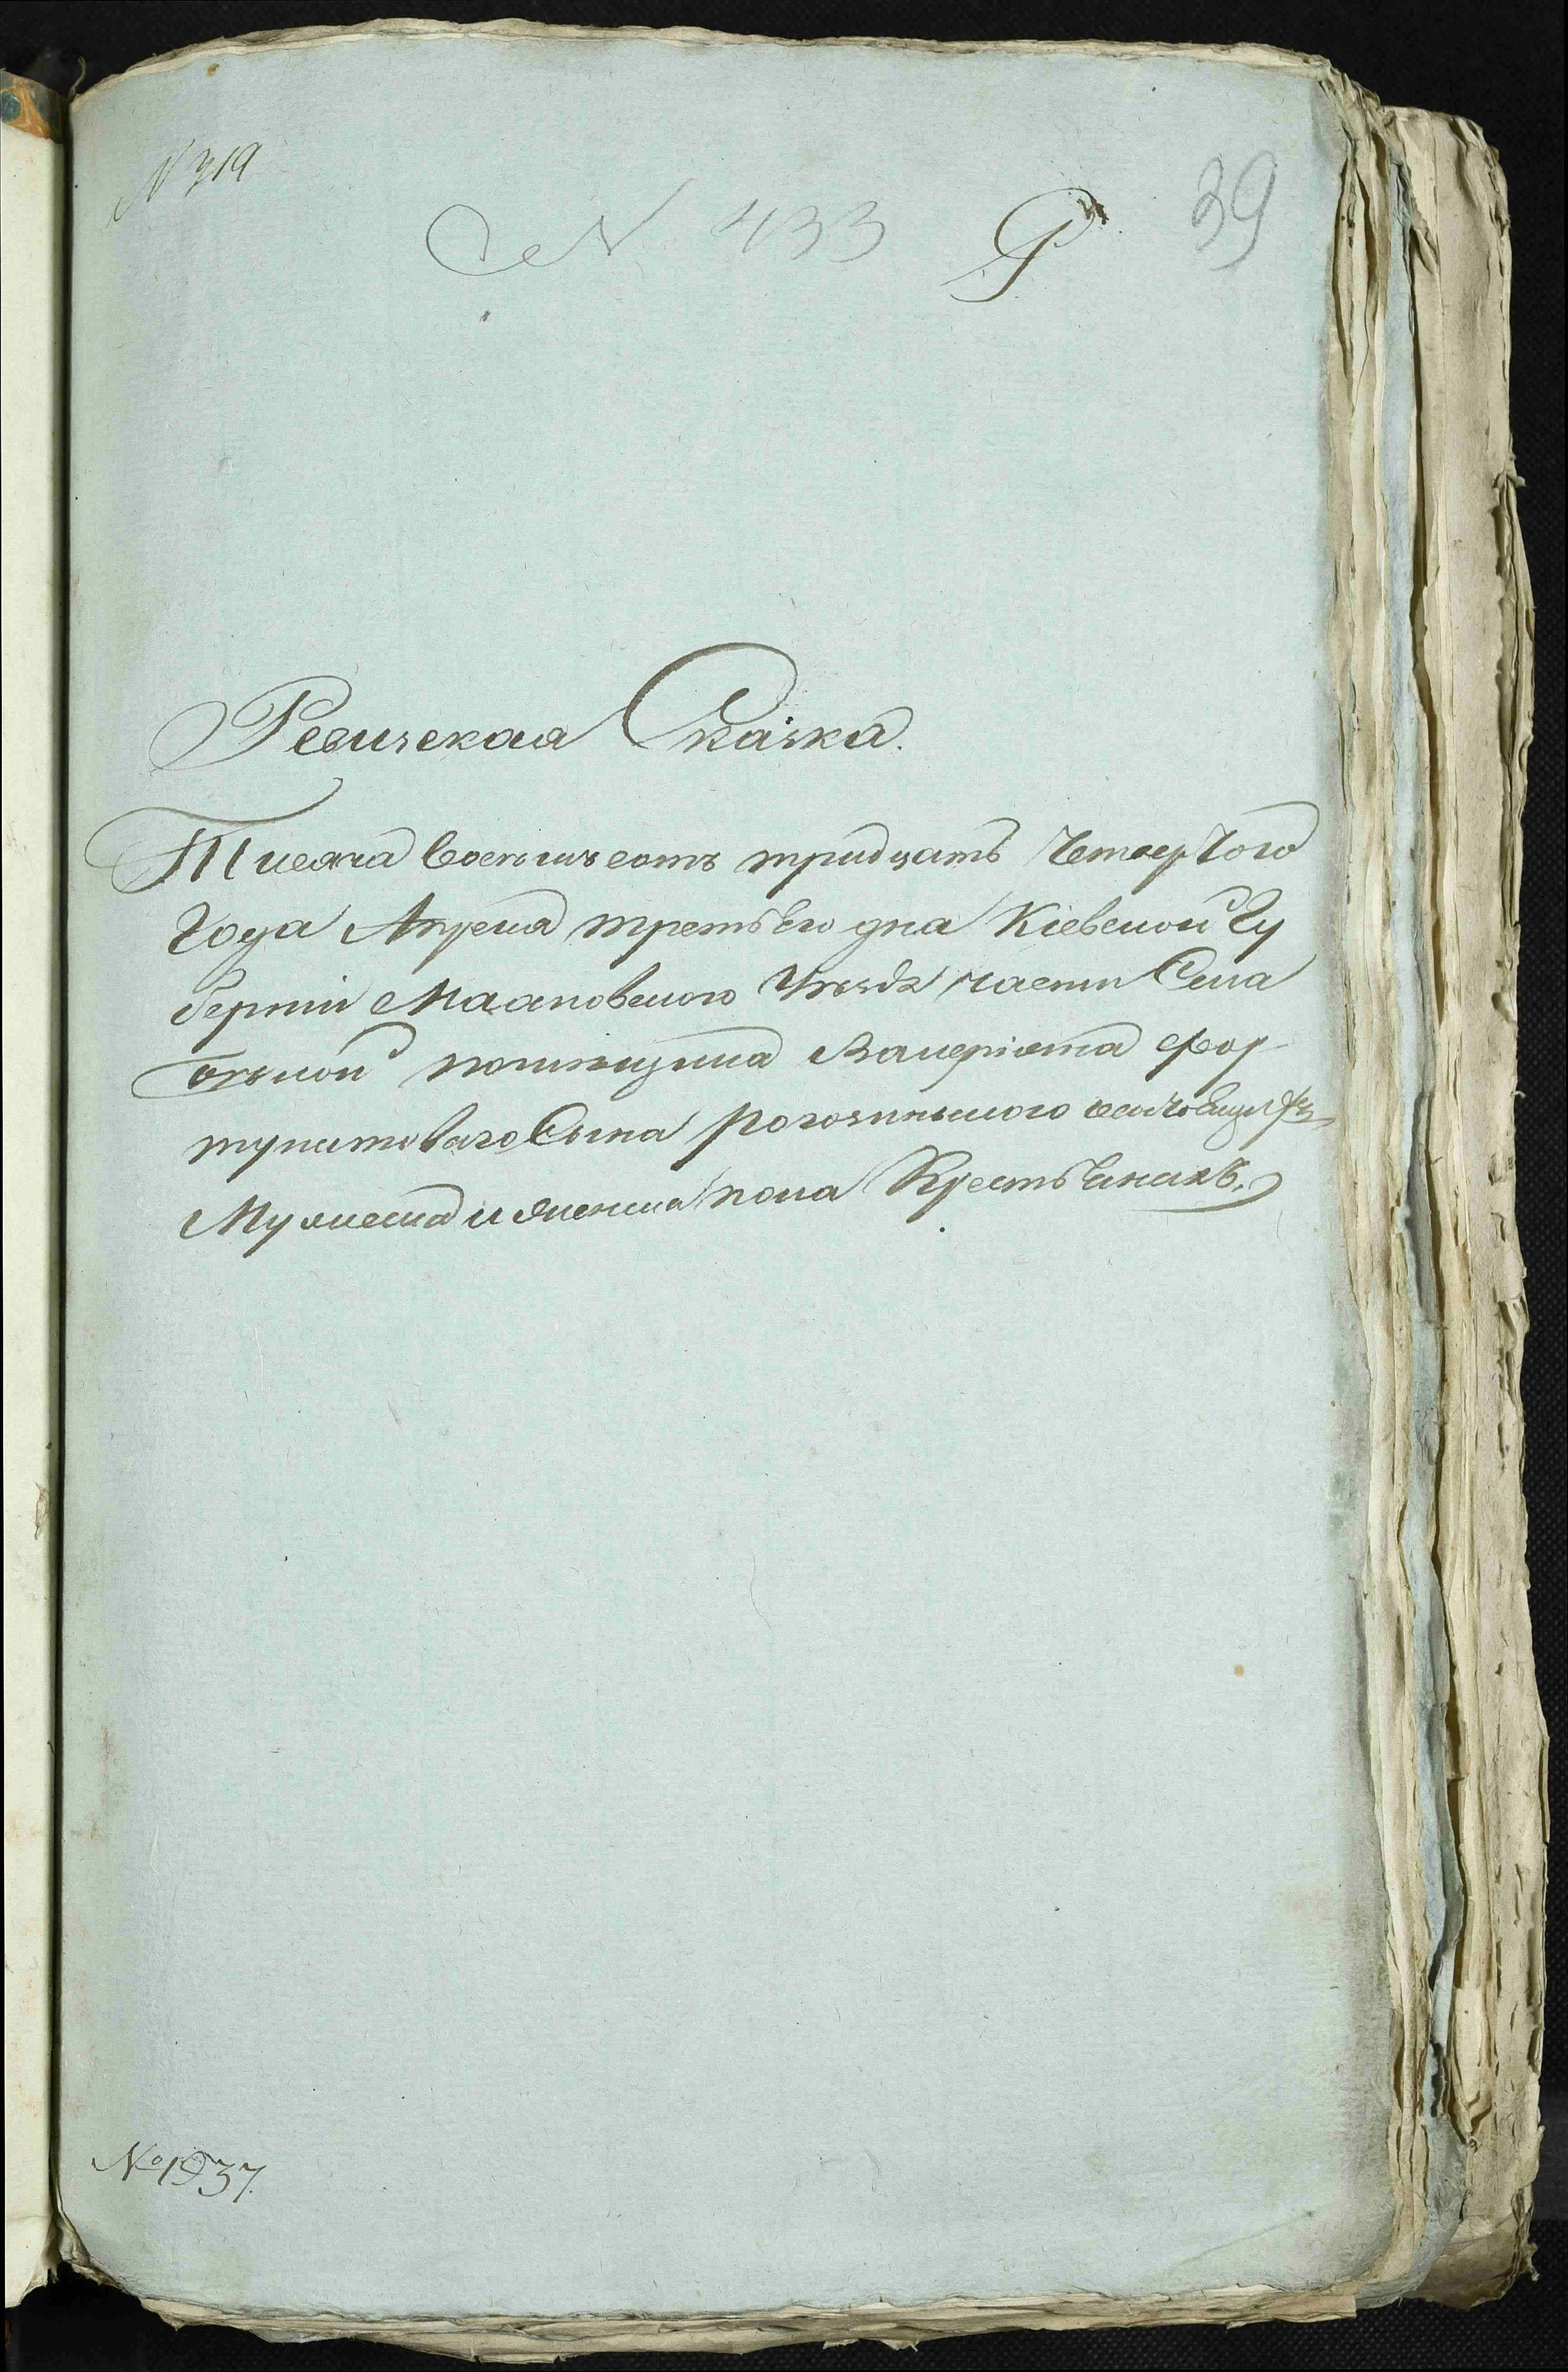 N 319
N 433
39
Ревизская Сказка.
Тисяча восемъ сотъ тридцать Четвертого
Года Апреля третьего дня Кіевской Гу
берніи Махновского Уезда части Села
помещика Валеріяна Фор
тунатоваго Сына Рогозинского состоящих
Мужеска и женска пола Крестьянахъ.
№ 1937.